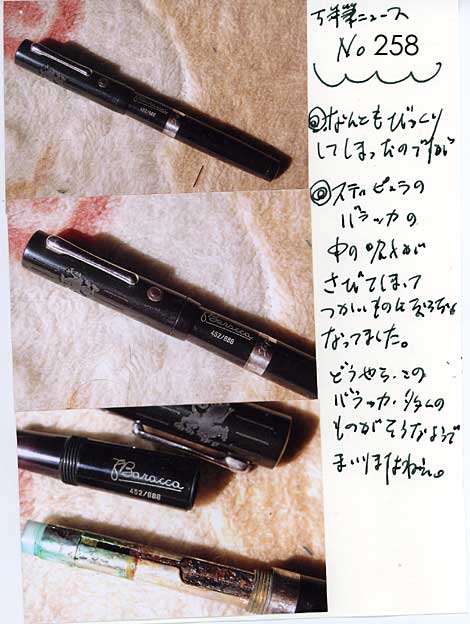 万年筆ニュース
No 258
◎なんともびっくり
してしまったのですが
◎スティピュラの
バラッカの
中の吸入が
さびてしまって
つかいものにならなく
なってました。
どうやら、この
バラッカ・タイムの
ものがそうなようで
まいりますねぇ。
F Baracca
452/686
F Baracca
452/686